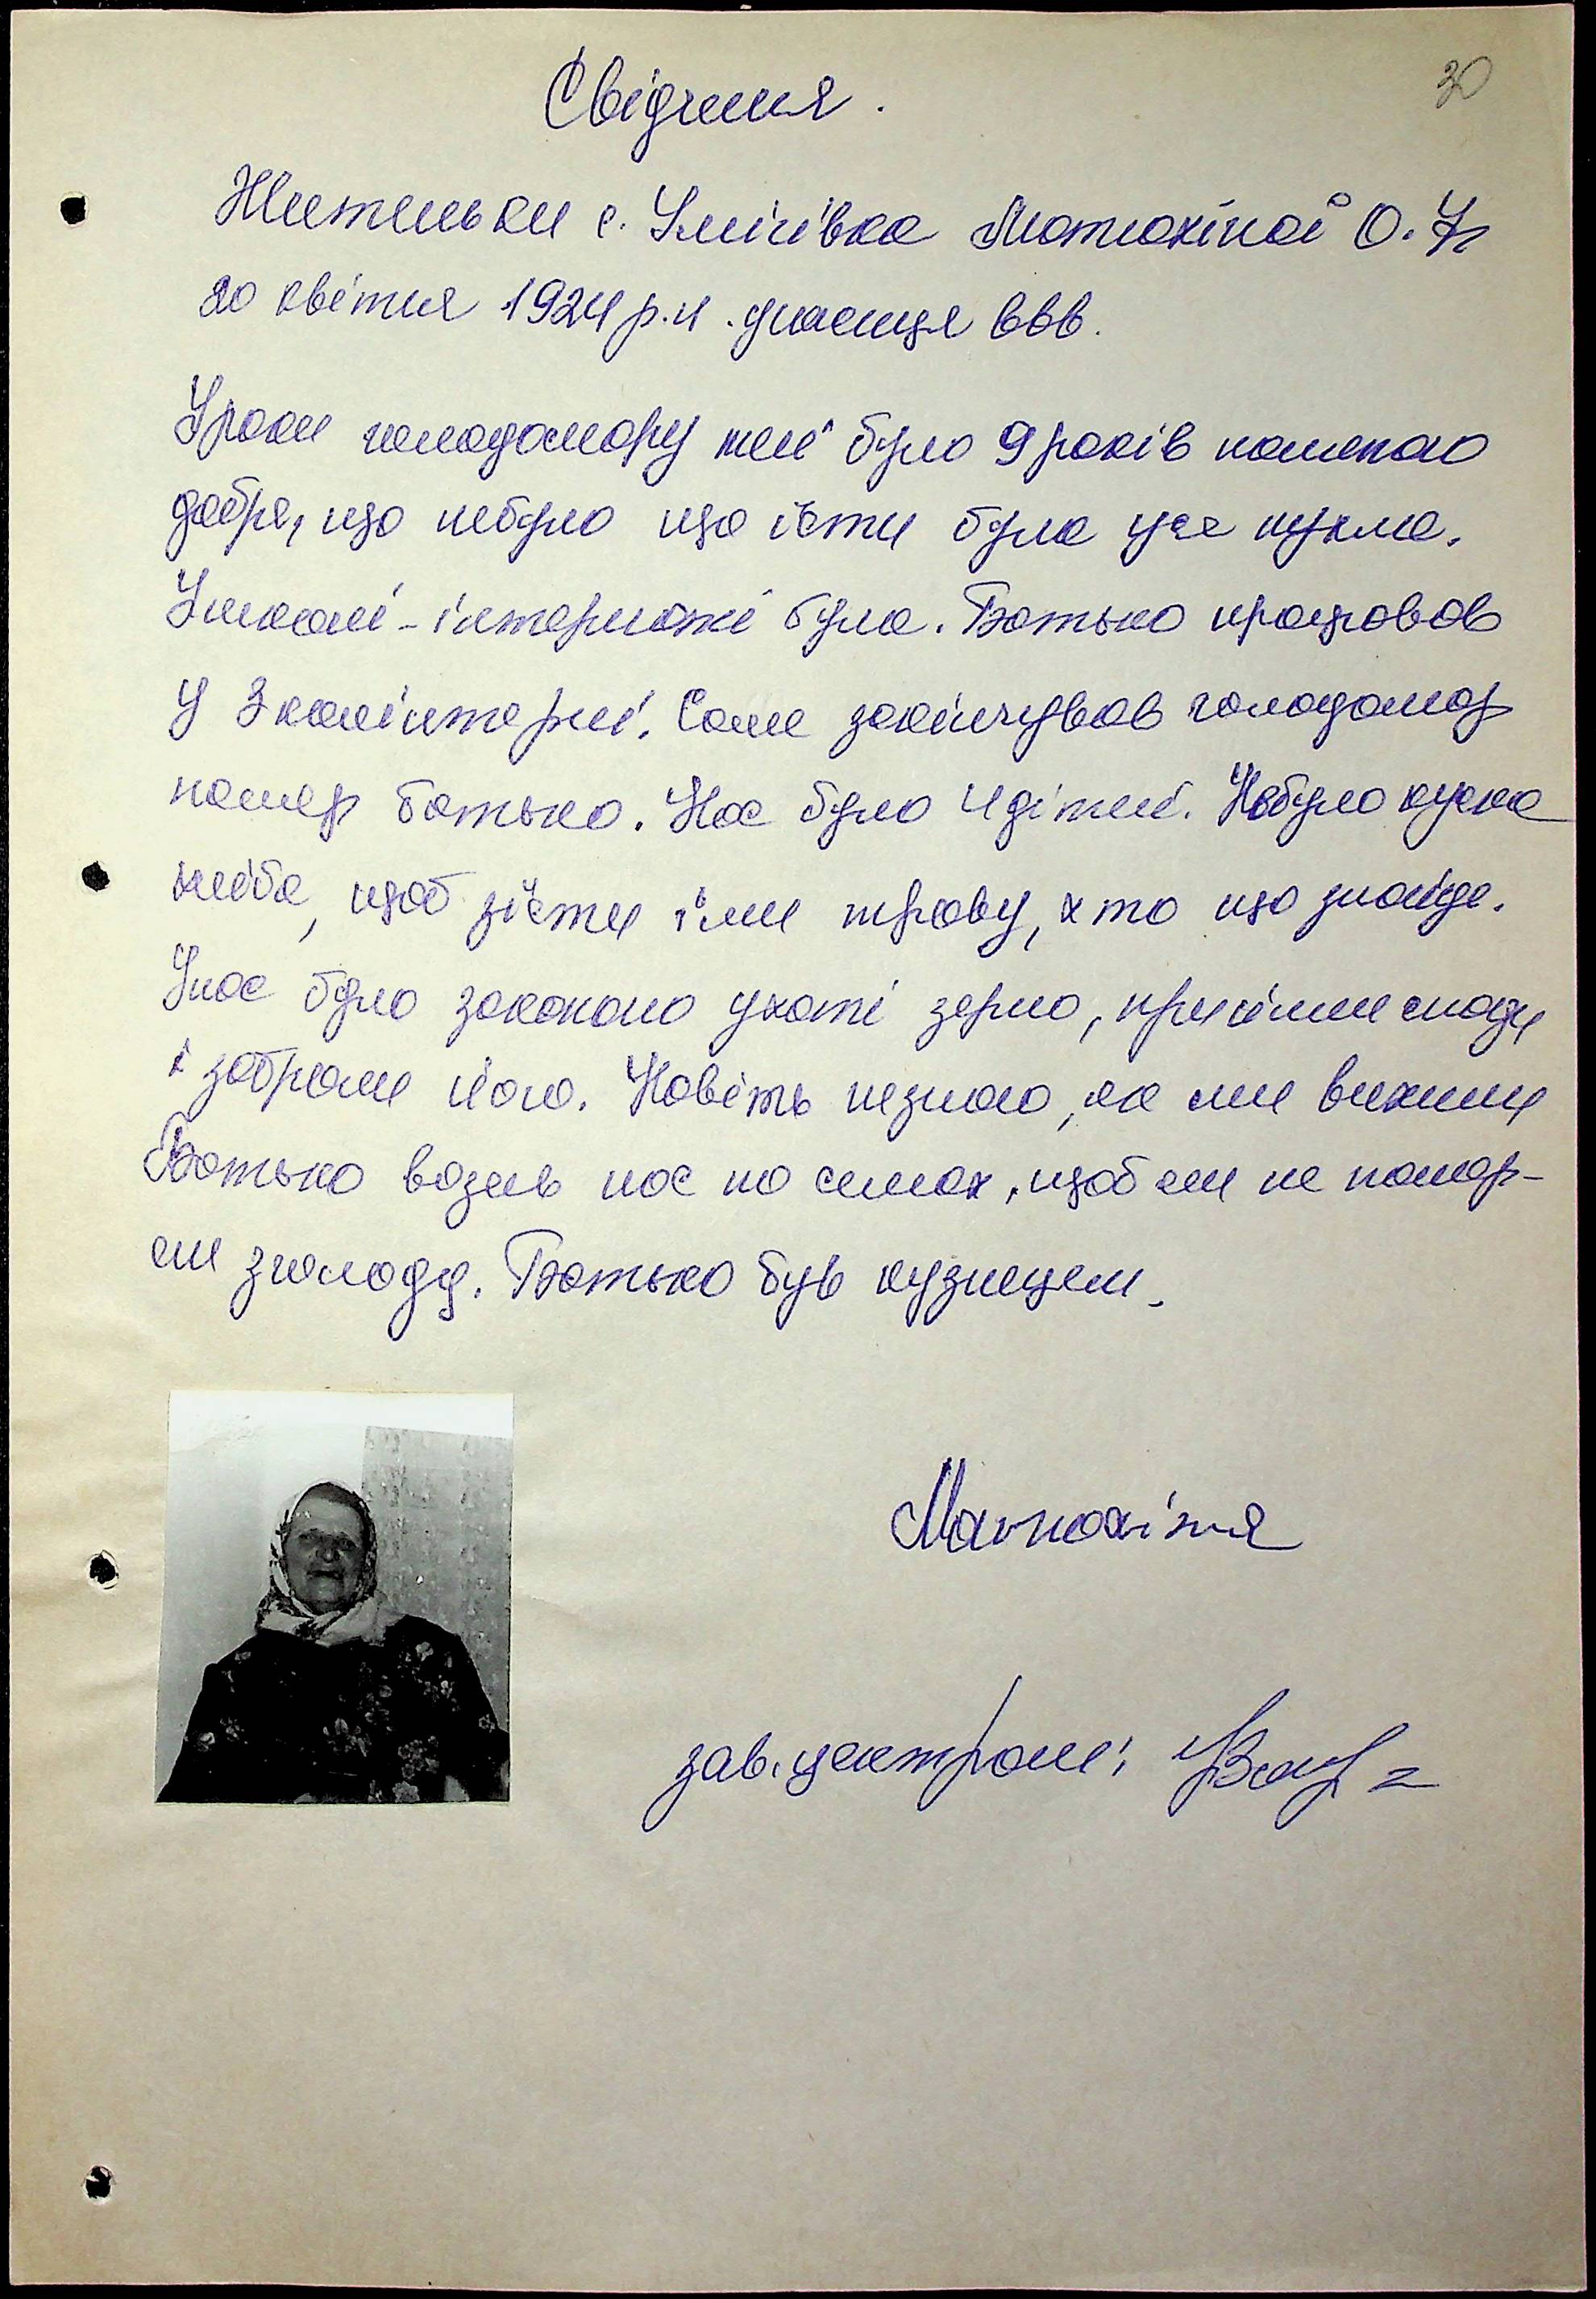 30
Свідчення.
Жительки с. Улішівка Матюхіної О.
20 квітня 1924 р.н. учасниця ВВВ.
Уроки голодомору мені було 9 років помятаю
добре, що небуло що їсти була уся пухла.
Ушколі-інтернаті була. Батько працював
у Зкомінтерні. Саме закінчував голодомор
помер батько. Нас було 4 дітей. Небуло куска
хліба, щоб зїсти їли траву, хто що знайде.
Унас було закопано ухаті зерно, прийшли люди
і забрали його. Навіть незнаю, як ми вижили
Батько возив нас по селах, щоб ми не помер-
ли зголоду. Батько був кузнецем.
Матюхіня
зав. центром: